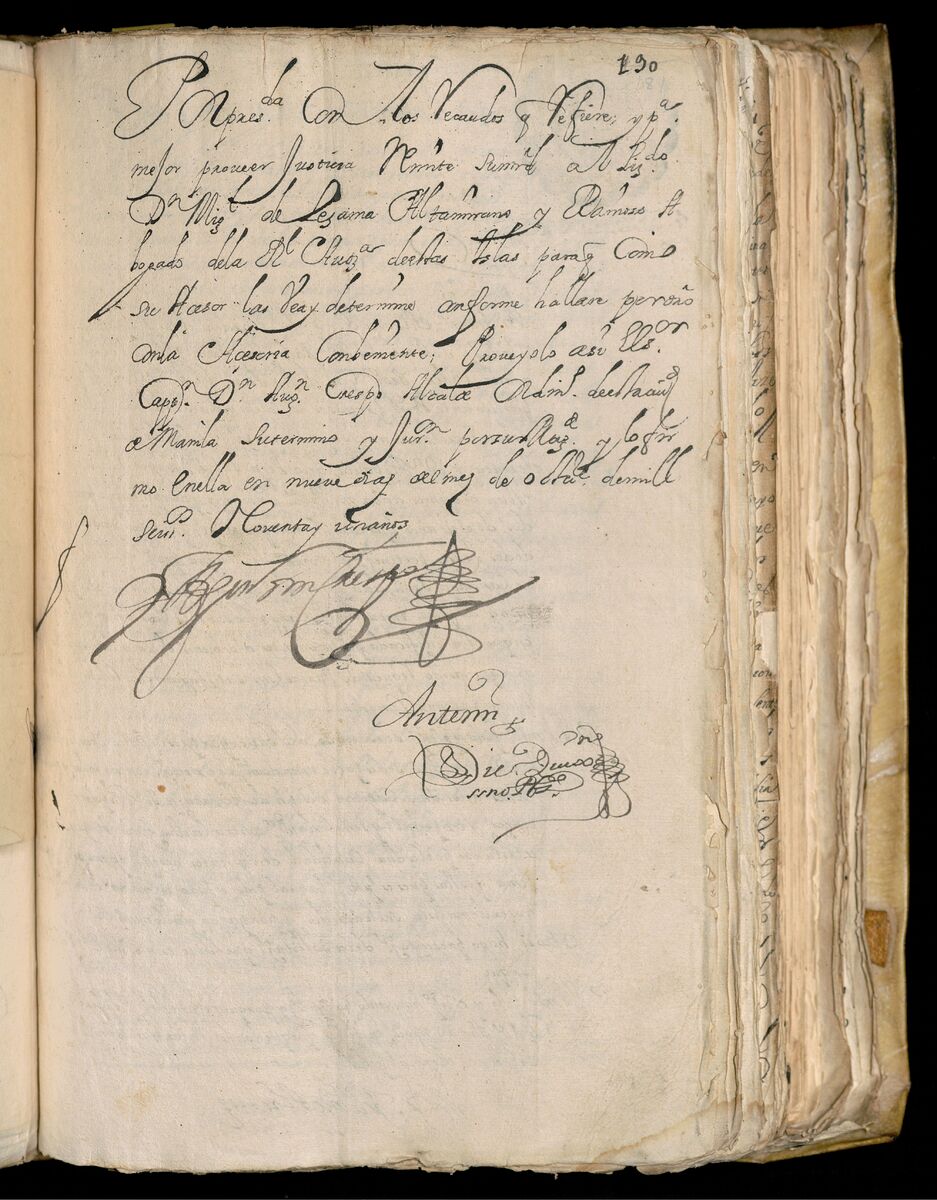 190
Por pres.da Con Los Recaudos q Refiere, y p.a
mejor proveer Justicia Remite sumrd a el liz.do
Dn Mig.l de Lesama Altamirano y Reinoso A
bogado dela Rl Auz.a destas Islas paraq Como
su Acesor las Vea y determine conforme hallare per dro
conla Acesoria Combeniente; Proveyolo asi El s.or
Cappn. Dn Aug.n Crespo Alcalde Ordin.o desta ciud
de Manila sutermino y Jur.on por su Mag.d y lo fir
mo. Enella en nueve dias del mes de octu.e demill
seis.os Noventa y un años
Agustin Crespo
Antemi
ssno